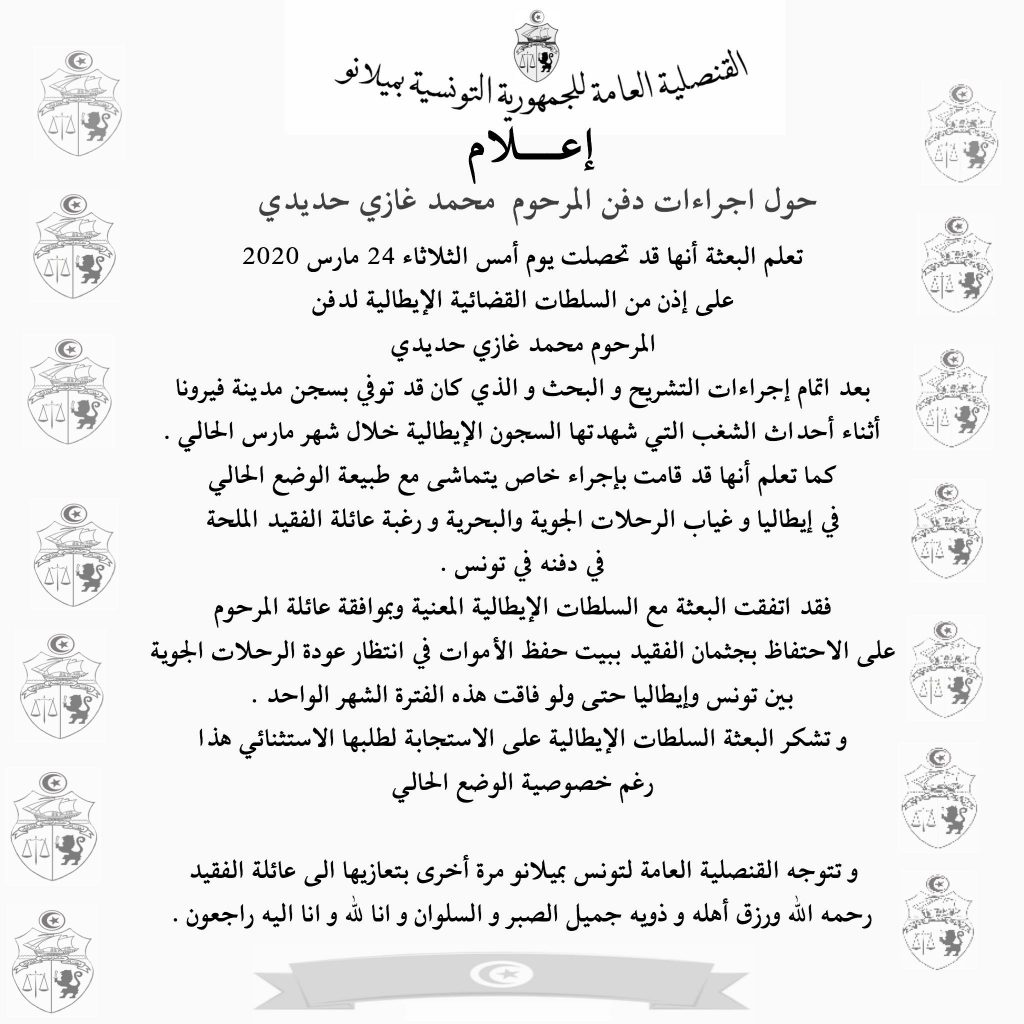 القنصلية العامة للجمهورية التونسية بميلانو
إعـــلام
حول اجراءات دفن المرحوم محمد غازي حديدي
تعلم البعثة أنها قد تحصلت يوم أمس الثلاثاء 24 مارس 2020
على إذن من السلطات القضائية الإيطالية لدفن
المرحوم محمد غازي حديدي
بعد اتمام إجراءات التشريح و البحث و الذي كان قد توفي بسجن مدينة فيرونا
أثناء أحداث الشغب التي شهدتها السجون الإيطالية خلال شهر مارس الحالي .
كما تعلم أنها قد قامت بإجراء خاص يتماشى مع طبيعة الوضع الحالي
في إيطاليا و غياب الرحلات الجوية والبحرية و رغبة عائلة الفقيد الملحة
في دفنه في تونس .
فقد اتفقت البعثة مع السلطات الإيطالية المعنية وبموافقة عائلة المرحوم
على الاحتفاظ بجثمان الفقيد ببيت حفظ الأموات في انتظار عودة الرحلات الجوية
بين تونس وإيطاليا حتى ولو فاقت هذه الفترة الشهر الواحد .
و تشكر البعثة السلطات الإيطالية على الاستجابة لطلبها الاستثنائي هذا
رغم خصوصية الوضع الحالي
و تتوجه القنصلية العامة لتونس بميلانو مرة أخرى بتعازيها الى عائلة الفقيد
رحمه الله ورزق أهله و ذويه جميل الصبر و السلوان و انا لله و انا اليه راجعون .